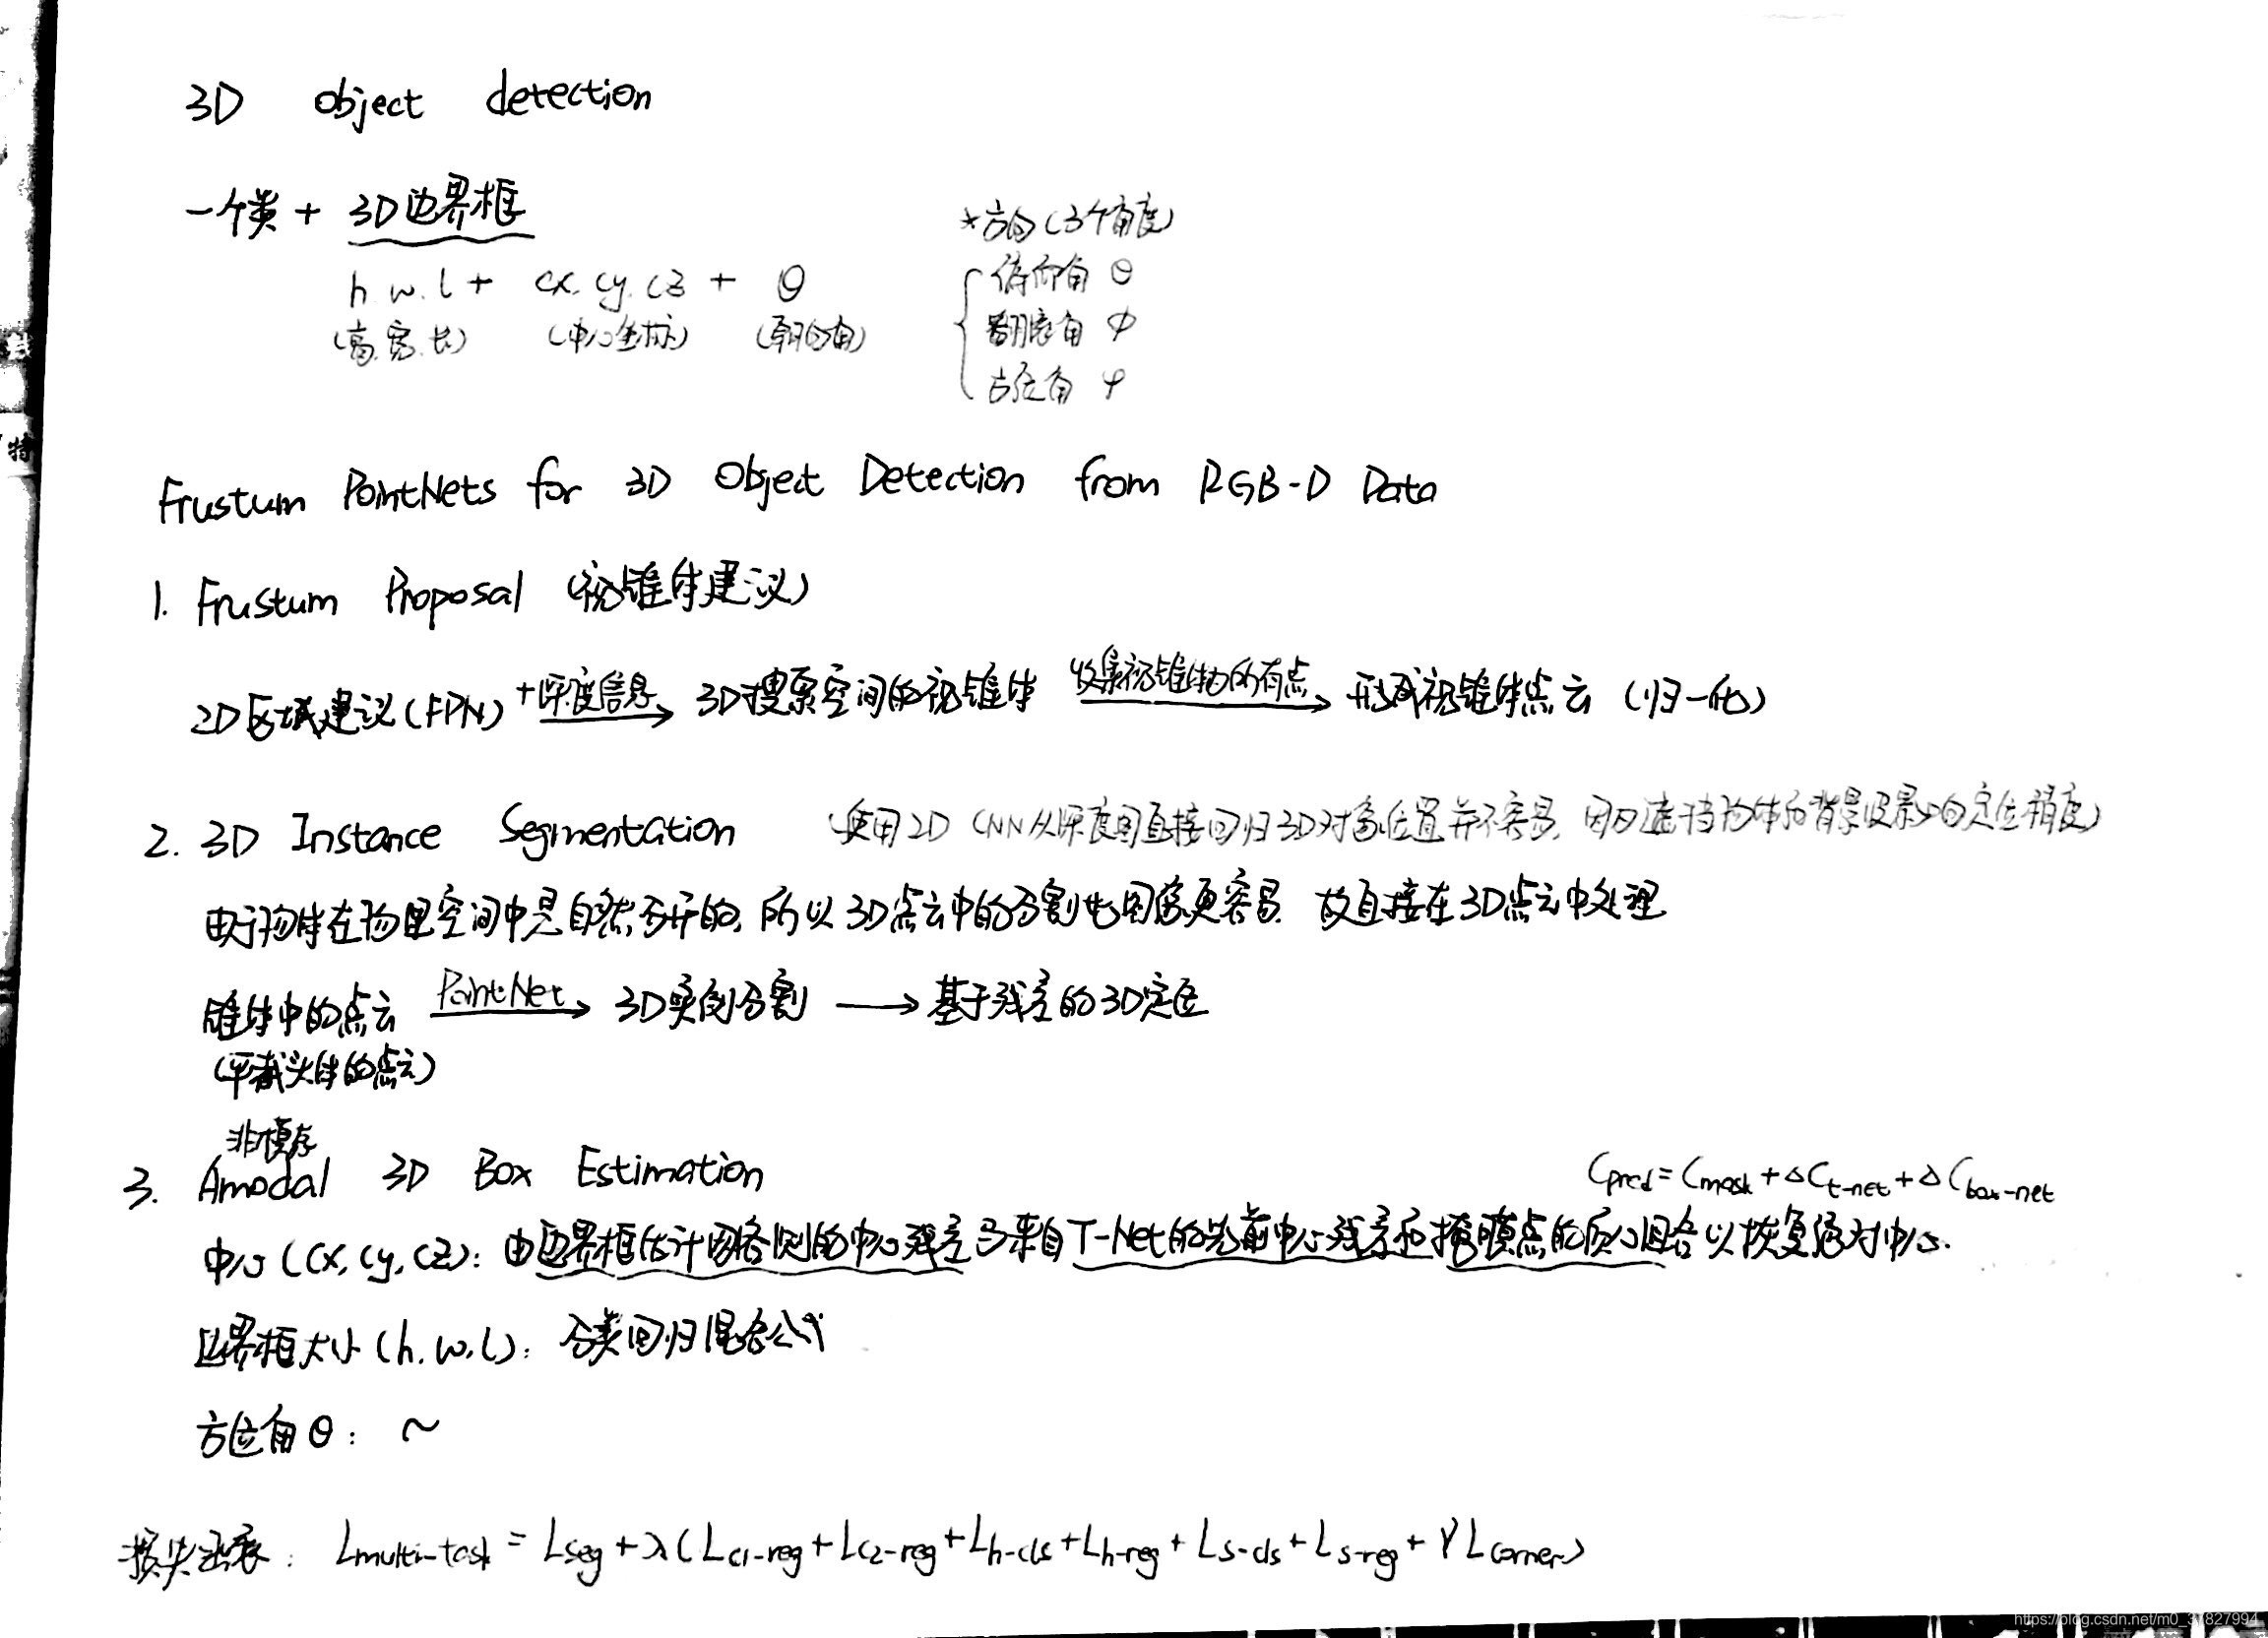 3D object detection
一个类 + 3D边界框
h.w.l + cx.cy.cz + θ
(高.宽.长) (中心坐标) (朝向角)
*方向(3个角度)
俯仰角 θ
翻滚角 φ
方位角 ψ
Frustum PointNets for 3D Object Detection from RGB-D Data
1. Frustum Proposal (视锥体建议)
2D区域建议(FPN) +深度信息→ 3D搜索空间的视锥体 收集视锥体内所有点→ 形成视锥体点云 (归一化)
2. 3D Instance Segmentation (使用2D CNN从深度图直接回归3D对象位置并不容易, 因为遮挡物体和背景杂影响定位精度)
由于物体在物理空间中是自然分开的, 所以3D点云中的分割比图像更容易. 故直接在3D点云中处理
锥体中的点云 PointNet→ 3D实例分割 → 基于残差的3D定位
(平截头体的点云)
非模态
3. Amodal 3D Box Estimation
Cpred = Cmask + ΔCt-net + ΔCbox-net
中心(cx, cy, cz): 由边界框估计网络预测的中心残差与来自T-Net的先前中心残差和掩膜点的质心组合以恢复绝对中心.
边界框大小(h.w.l): 分类回归混合公式
方位角θ: ~
损失函数: Lmulti-task = Lseg + λ(Lc1-reg + Lc2-reg + Lh-cls + Lh-reg + Ls-cls + Ls-reg + γLcorner)
特
https://blog.csdn.net/m0_37827994